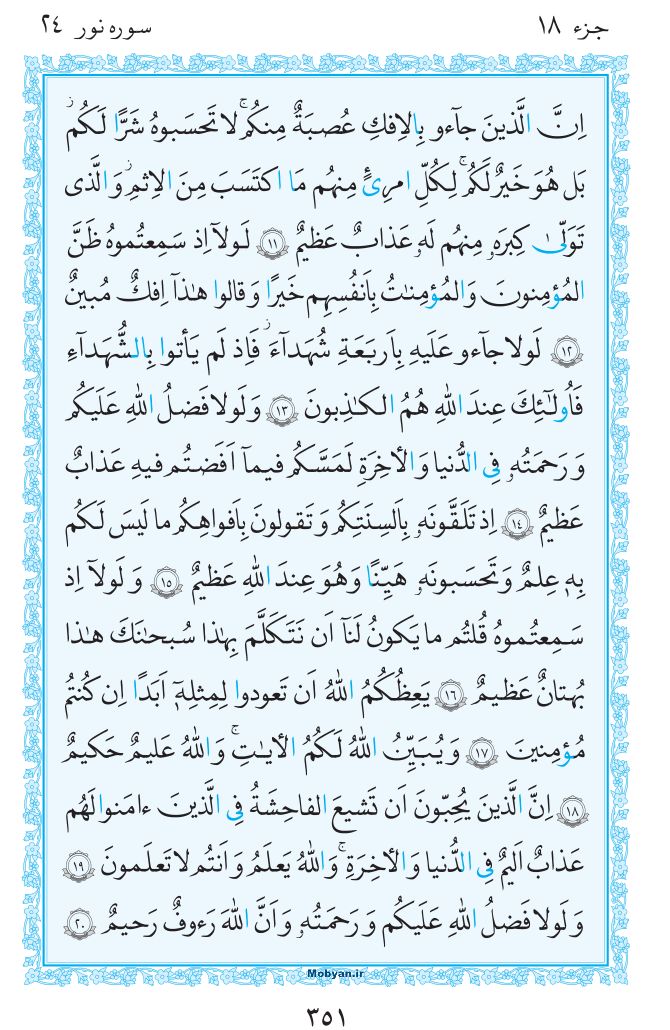 جزء ١٨
سوره نور ٢٤
اِنَّ الَّذينَ جآءو بِالاِفكِ عُصبَةٌ مِنكُم ۚ لا تَحسَبوهُ شَرًّا لَكُم ۖ
بَل هُوَ خَيرٌ لَكُم ۚ لِكُلِّ امرِئٍ مِنهُم مَا اكتَسَبَ مِنَ الاِثمِ ۚ وَالَّذى
تَوَلّىٰ كِبرَهٗ مِنهُم لَهٗ عَذابٌ عَظيمٌ ﴿١١﴾ لَولآ اِذ سَمِعتُموهُ ظَنَّ
المُؤمِنونَ وَالمُؤمِنٰتُ بِاَنفُسِهِم خَيرًا وَقالوا هٰذآ اِفكٌ مُبينٌ
﴿١٢﴾ لَولا جآءو عَلَيهِ بِاَربَعَةِ شُهَدآءَ ۚ فَاِذ لَم يَأتوا بِالشُّهَدآءِ
فَاُولٰئِكَ عِندَ اللهِ هُمُ الكٰذِبونَ ﴿١٣﴾ وَلَولا فَضلُ اللهِ عَلَيكُم
وَرَحمَتُهٗ فِى الدُّنيا وَالأخِرَةِ لَمَسَّكُم فيمآ اَفَضتُم فيهِ عَذابٌ
عَظيمٌ ﴿١٤﴾ اِذ تَلَقَّونَهٗ بِاَلسِنَتِكُم وَتَقولونَ بِاَفواهِكُم ما لَيسَ لَكُم
بِهٖ عِلمٌ وَتَحسَبونَهٗ هَيِّنًا وَهُوَ عِندَ اللهِ عَظيمٌ ﴿١٥﴾ وَلَولآ اِذ
سَمِعتُموهُ قُلتُم ما يَكونُ لَنآ اَن نَتَكَلَّمَ بِهٰذا سُبحٰنَكَ هٰذا
بُهتانٌ عَظيمٌ ﴿١٦﴾ يَعِظُكُمُ اللهُ اَن تَعودوا لِمِثلِهٖٓ اَبَدًا اِن كُنتُم
مُؤمِنينَ ﴿١٧﴾ وَيُبَيِّنُ اللهُ لَكُمُ الأيٰتِ ۚ وَاللهُ عَليمٌ حَكيمٌ
﴿١٨﴾ اِنَّ الَّذينَ يُحِبّونَ اَن تَشيعَ الفاحِشَةُ فِى الَّذينَ ءامَنوا لَهُم
عَذابٌ اَليمٌ فِى الدُّنيا وَالأخِرَةِ ۚ وَاللهُ يَعلَمُ وَاَنتُم لا تَعلَمونَ ﴿١٩﴾
وَلَولا فَضلُ اللهِ عَلَيكُم وَرَحمَتُهٗ وَاَنَّ اللهَ رَءوفٌ رَحيمٌ ﴿٢٠﴾
Mobyan.ir
٣٥١